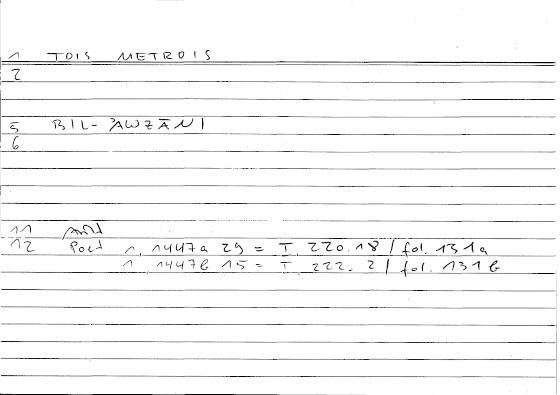 1 TOIS METROIS
2
5 BIL-ʾAWZĀNI
6
11 Arist
12 Poet 1, 1447a 29 = T 220.18 / fol. 131a
1, 1447b 15 = T 222. 2 / fol. 131b